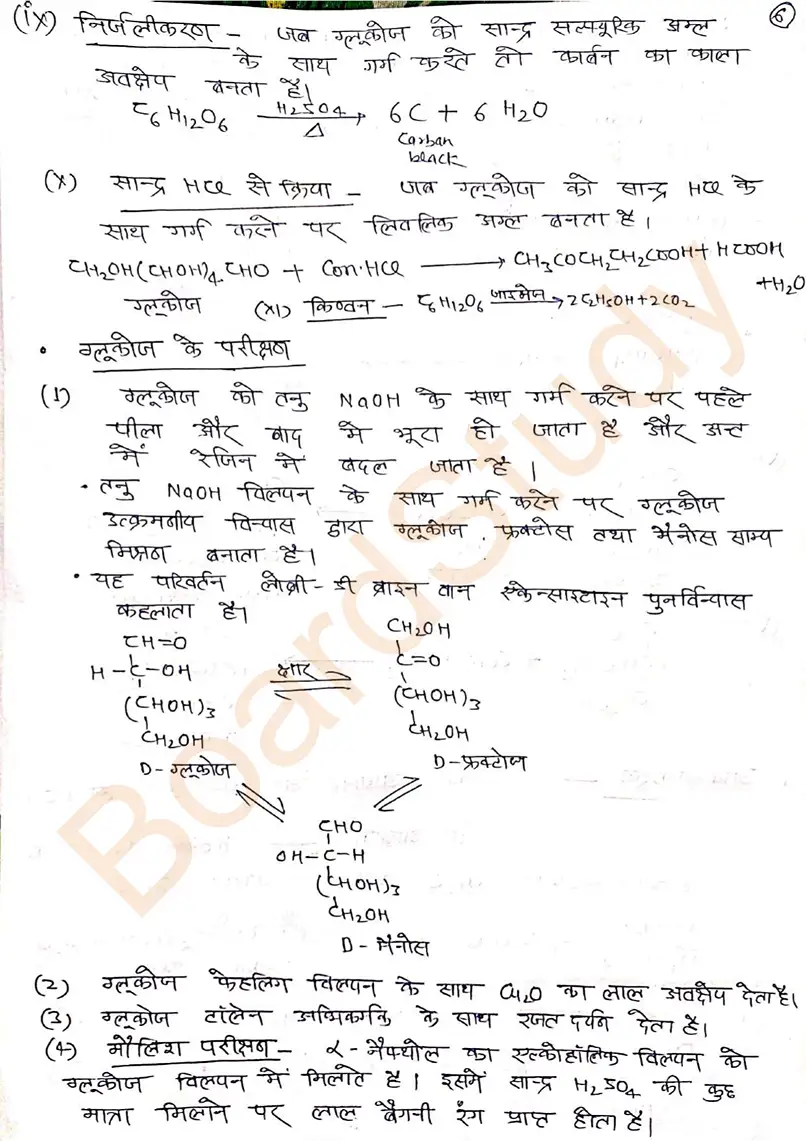 (ix) निर्जलीकरण - जब ग्लूकोज को सान्द्र सल्फ्यूरिक अम्ल 6
के साथ गर्म करते तो कार्बन का काला
अवक्षेप बनता है।
C6H12O6 —H2SO4/Δ→ 6C + 6 H2O
Carbon
black
(x) सान्द्र HCl से क्रिया - जब ग्लूकोज को सान्द्र HCl के
साथ गर्म करने पर लिवलिक अम्ल बनता है।
CH2OH(CHOH)4.CHO + Con.HCl ⟶ CH3COCH2CH2COOH + HCOOH
+H2O
ग्लूकोज (XI) किण्वन - C6H12O6 —जाइमेज→ 2C2H5OH+2CO2
• ग्लूकोज के परीक्षण
(1) ग्लूकोज को तनु NaOH के साथ गर्म करने पर पहले
पीला और बाद मे भूरा हो जाता है और अन्त
में रेजिन में बदल जाता है।
• तनु NaOH विलयन के साथ गर्म करने पर ग्लूकोज
उत्क्रमनीय विन्यास द्वारा ग्लूकोज, फ्रक्टोस तथा मैनोस साम्य
मिश्रण बनाता है।
• यह परिवर्तन लोब्री-डी ब्राइन वान एकेन्सटाइन पुनर्विन्यास
कहलाता है।
CH=O
H-C-OH
(CHOH)3
CH2OH
D-ग्लूकोज
क्षार
CH2OH
C=O
(CHOH)3
CH2OH
D-फ्रक्टोज
CHO
OH-C-H
(CHOH)3
CH2OH
D-मैनोस
(2) ग्लूकोज फेहलिंग विलयन के साथ Cu2O का लाल अवक्षेप देता है।
(3) ग्लूकोज टॉलेन अभिकर्मक के साथ रजत दर्पन देता है।
(4) मौलिश परीक्षण - α-नैफ्थोल का एल्कोहॉलिक विलयन को
ग्लूकोज विलयन में मिलाते है। इसमें सान्द्र H2SO4 की कुछ
मात्रा मिलाने पर लाल बैगनी रंग प्राप्त होता है।
BoardStudy